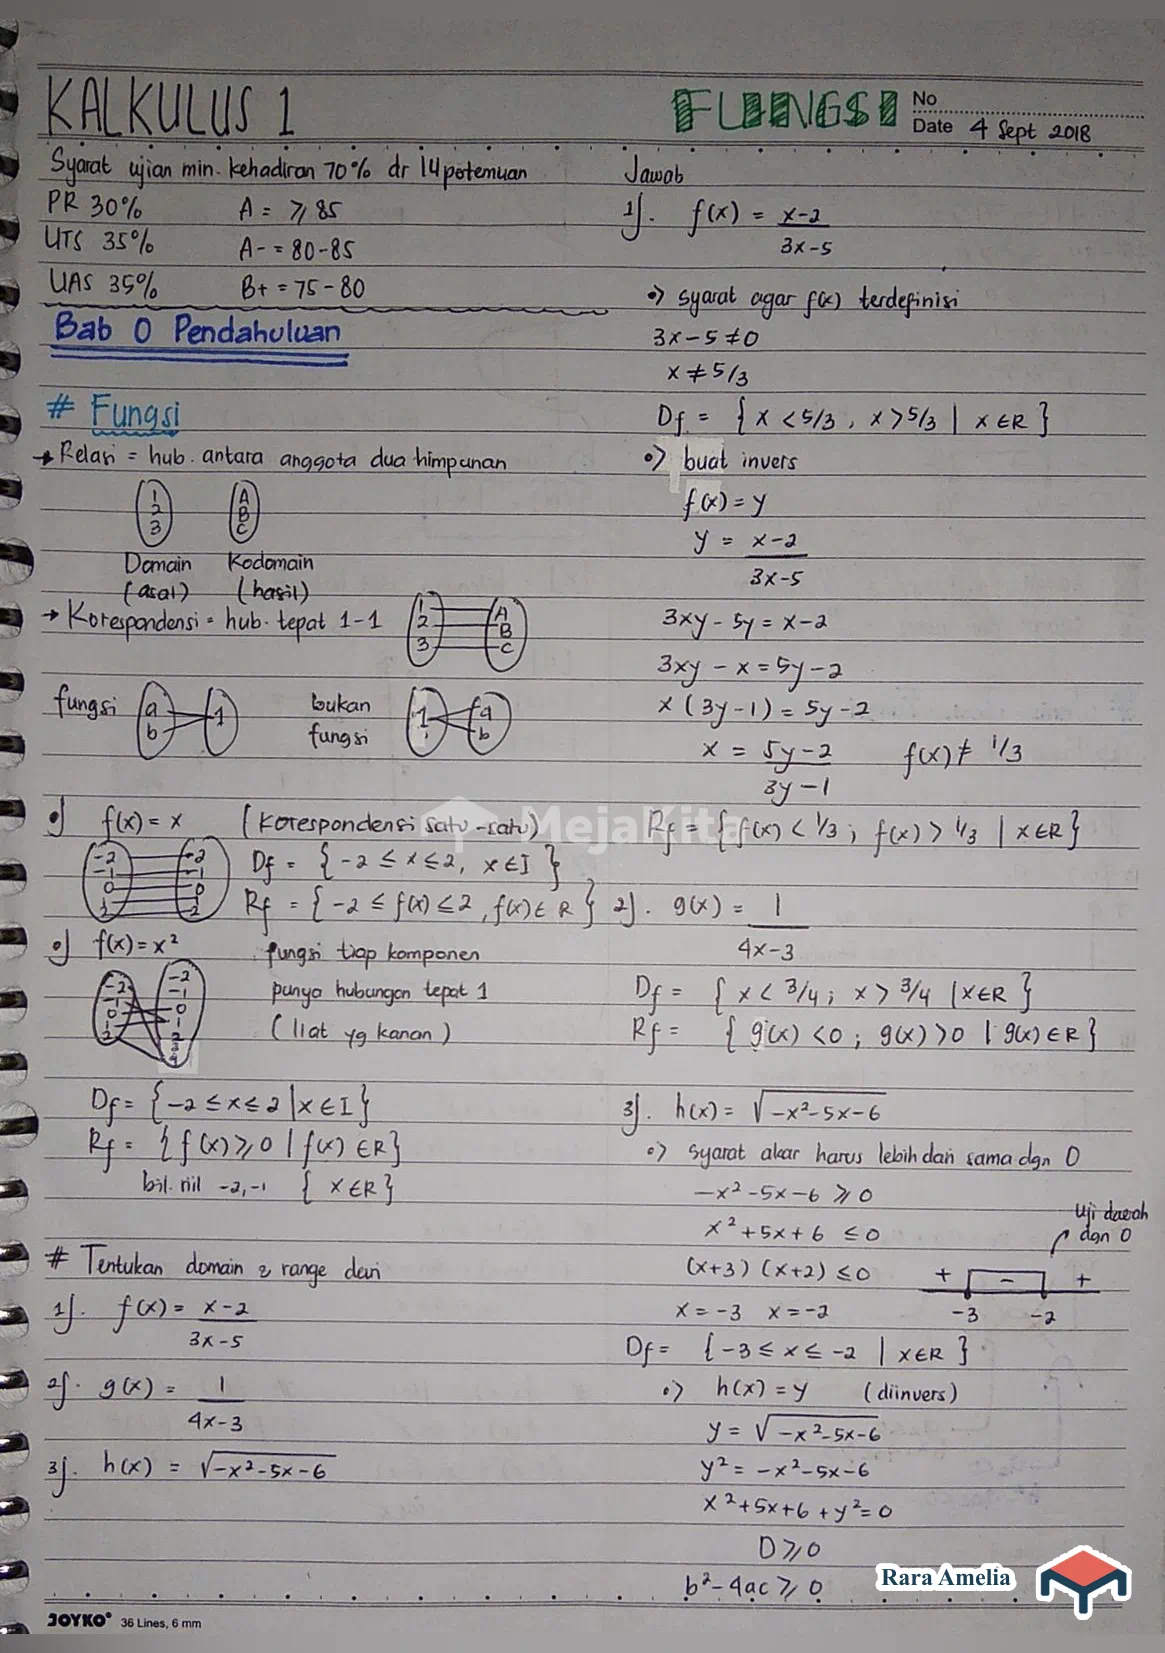 KALKULUS 1
FUNGSI
No
Date 4 Sept 2018
Syarat ujian min. kehadiran 70% dr 14 potemuan
PR 30% A = ⩾ 85
UTS 35% A- = 80-85
UAS 35% B+ = 75-80
Bab 0 Pendahuluan
# Fungsi
→ Relasi = hub. antara anggota dua himpunan
1 A
2 B
3 C
Domain Kodomain
(asal) (hasil)
→ Korespondensi = hub. tepat 1-1
1 A
2 B
3 C
fungsi a b 1 bukan fungsi 1 a b
•) f(x) = x (korespondensi satu-satu)
-2 -2
-1 -1
0 0
1 1
2 2
Df = { -2 ≤ x ≤ 2, x ∈ I }
Rf = { -2 ≤ f(x) ≤ 2, f(x) ∈ R }
•) f(x) = x² fungsi tiap komponen
punya hubungan tepat 1
(liat yg kanan)
-2 -2
-1 -1
0 0
1 1
2 2
3
4
Df = { -2 ≤ x ≤ 2 | x ∈ I }
Rf = { f(x) ⩾ 0 | f(x) ∈ R }
bil. riil -2, -1 { x ∈ R }
# Tentukan domain & range dari
1). f(x) = x-2
3x-5
2). g(x) = 1
4x-3
3). h(x) = √-x²-5x-6
Jawab
1). f(x) = x-2
3x-5
•) syarat agar f(x) terdefinisi
3x-5 ≠ 0
x ≠ 5/3
Df = { x < 5/3, x > 5/3 | x ∈ R }
•) buat invers
f(x) = y
y = x-2
3x-5
3xy - 5y = x-2
3xy - x = 5y-2
x (3y-1) = 5y-2
x = 5y-2 f(x) ≠ 1/3
3y-1
Rf = { f(x) < 1/3 ; f(x) > 1/3 | x ∈ R }
2). g(x) = 1
4x-3
Df = { x < 3/4 ; x > 3/4 | x ∈ R }
Rf = { g(x) < 0 ; g(x) > 0 | g(x) ∈ R }
3). h(x) = √-x²-5x-6
•) syarat akar harus lebih dari sama dgn 0
-x²-5x-6 ⩾ 0
x²+5x+6 ≤ 0
Uji daerah
dgn 0
(x+3) (x+2) ≤ 0
+ - +
x = -3 x = -2
-3 -2
Df = { -3 ≤ x ≤ -2 | x ∈ R }
•) h(x) = y (diinvers)
y = √-x²-5x-6
y² = -x²-5x-6
x²+5x+6+y² = 0
D ⩾ 0
b²-4ac ⩾ 0
MejaKita
Rara Amelia
JOYKO® 36 Lines, 6 mm